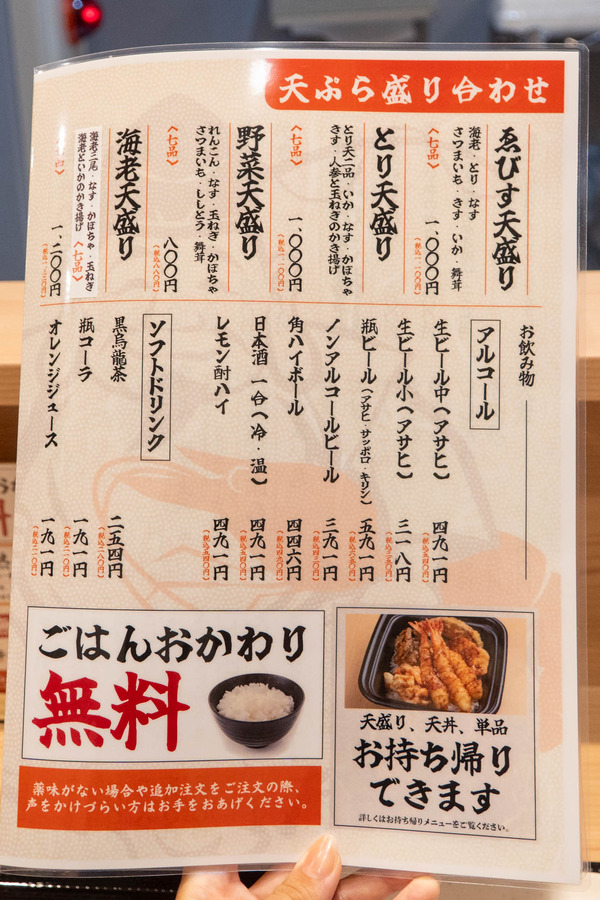 天ぷら盛り合わせ
ゑびす天盛り
海老・とり・なす
さつまいち・きす・いか・舞茸
〈七品〉
一、〇〇〇円
(税込一、一〇〇円)
とり天盛り
とり天二品・いか・なす・かぼちゃ
きす・人参と玉ねぎのかき揚げ
〈七品〉
一、〇〇〇円
(税込一、一〇〇円)
野菜天盛り
れんこん・なす・玉ねぎ・かぼちゃ
さつまいち・ししとう・舞茸
〈七品〉
八〇〇円
(税込八八〇円)
海老天盛り
海老三尾・なす・かぼちゃ・玉ねぎ
海老といかのかき揚げ
〈七品〉
一、二〇〇円
(税込一、三二〇円)
お飲み物
アルコール
生ビール中(アサヒ)
四九一円
(税込五四〇円)
生ビール小(アサヒ)
三一八円
(税込三五〇円)
瓶ビール(アサヒ・サッポロ・キリン)
五九一円
(税込六五〇円)
ノンアルコールビール
三九一円
(税込四三〇円)
角ハイボール
四四六円
(税込四九〇円)
日本酒 一合(冷・温)
四九一円
(税込五四〇円)
レモン酎ハイ
四九一円
(税込五四〇円)
ソフトドリンク
黒烏龍茶
二五四円
(税込二八〇円)
瓶コーラ
一九一円
(税込二一〇円)
オレンジジュース
一九一円
(税込二一〇円)
ごはんおかわり
無料
薬味がない場合や追加注文をご注文の際、
声をかけづらい方はお手をおあげください。
天盛り、天丼、単品
お持ち帰り
できます
詳しくはお持ち帰りメニューをご覧ください。